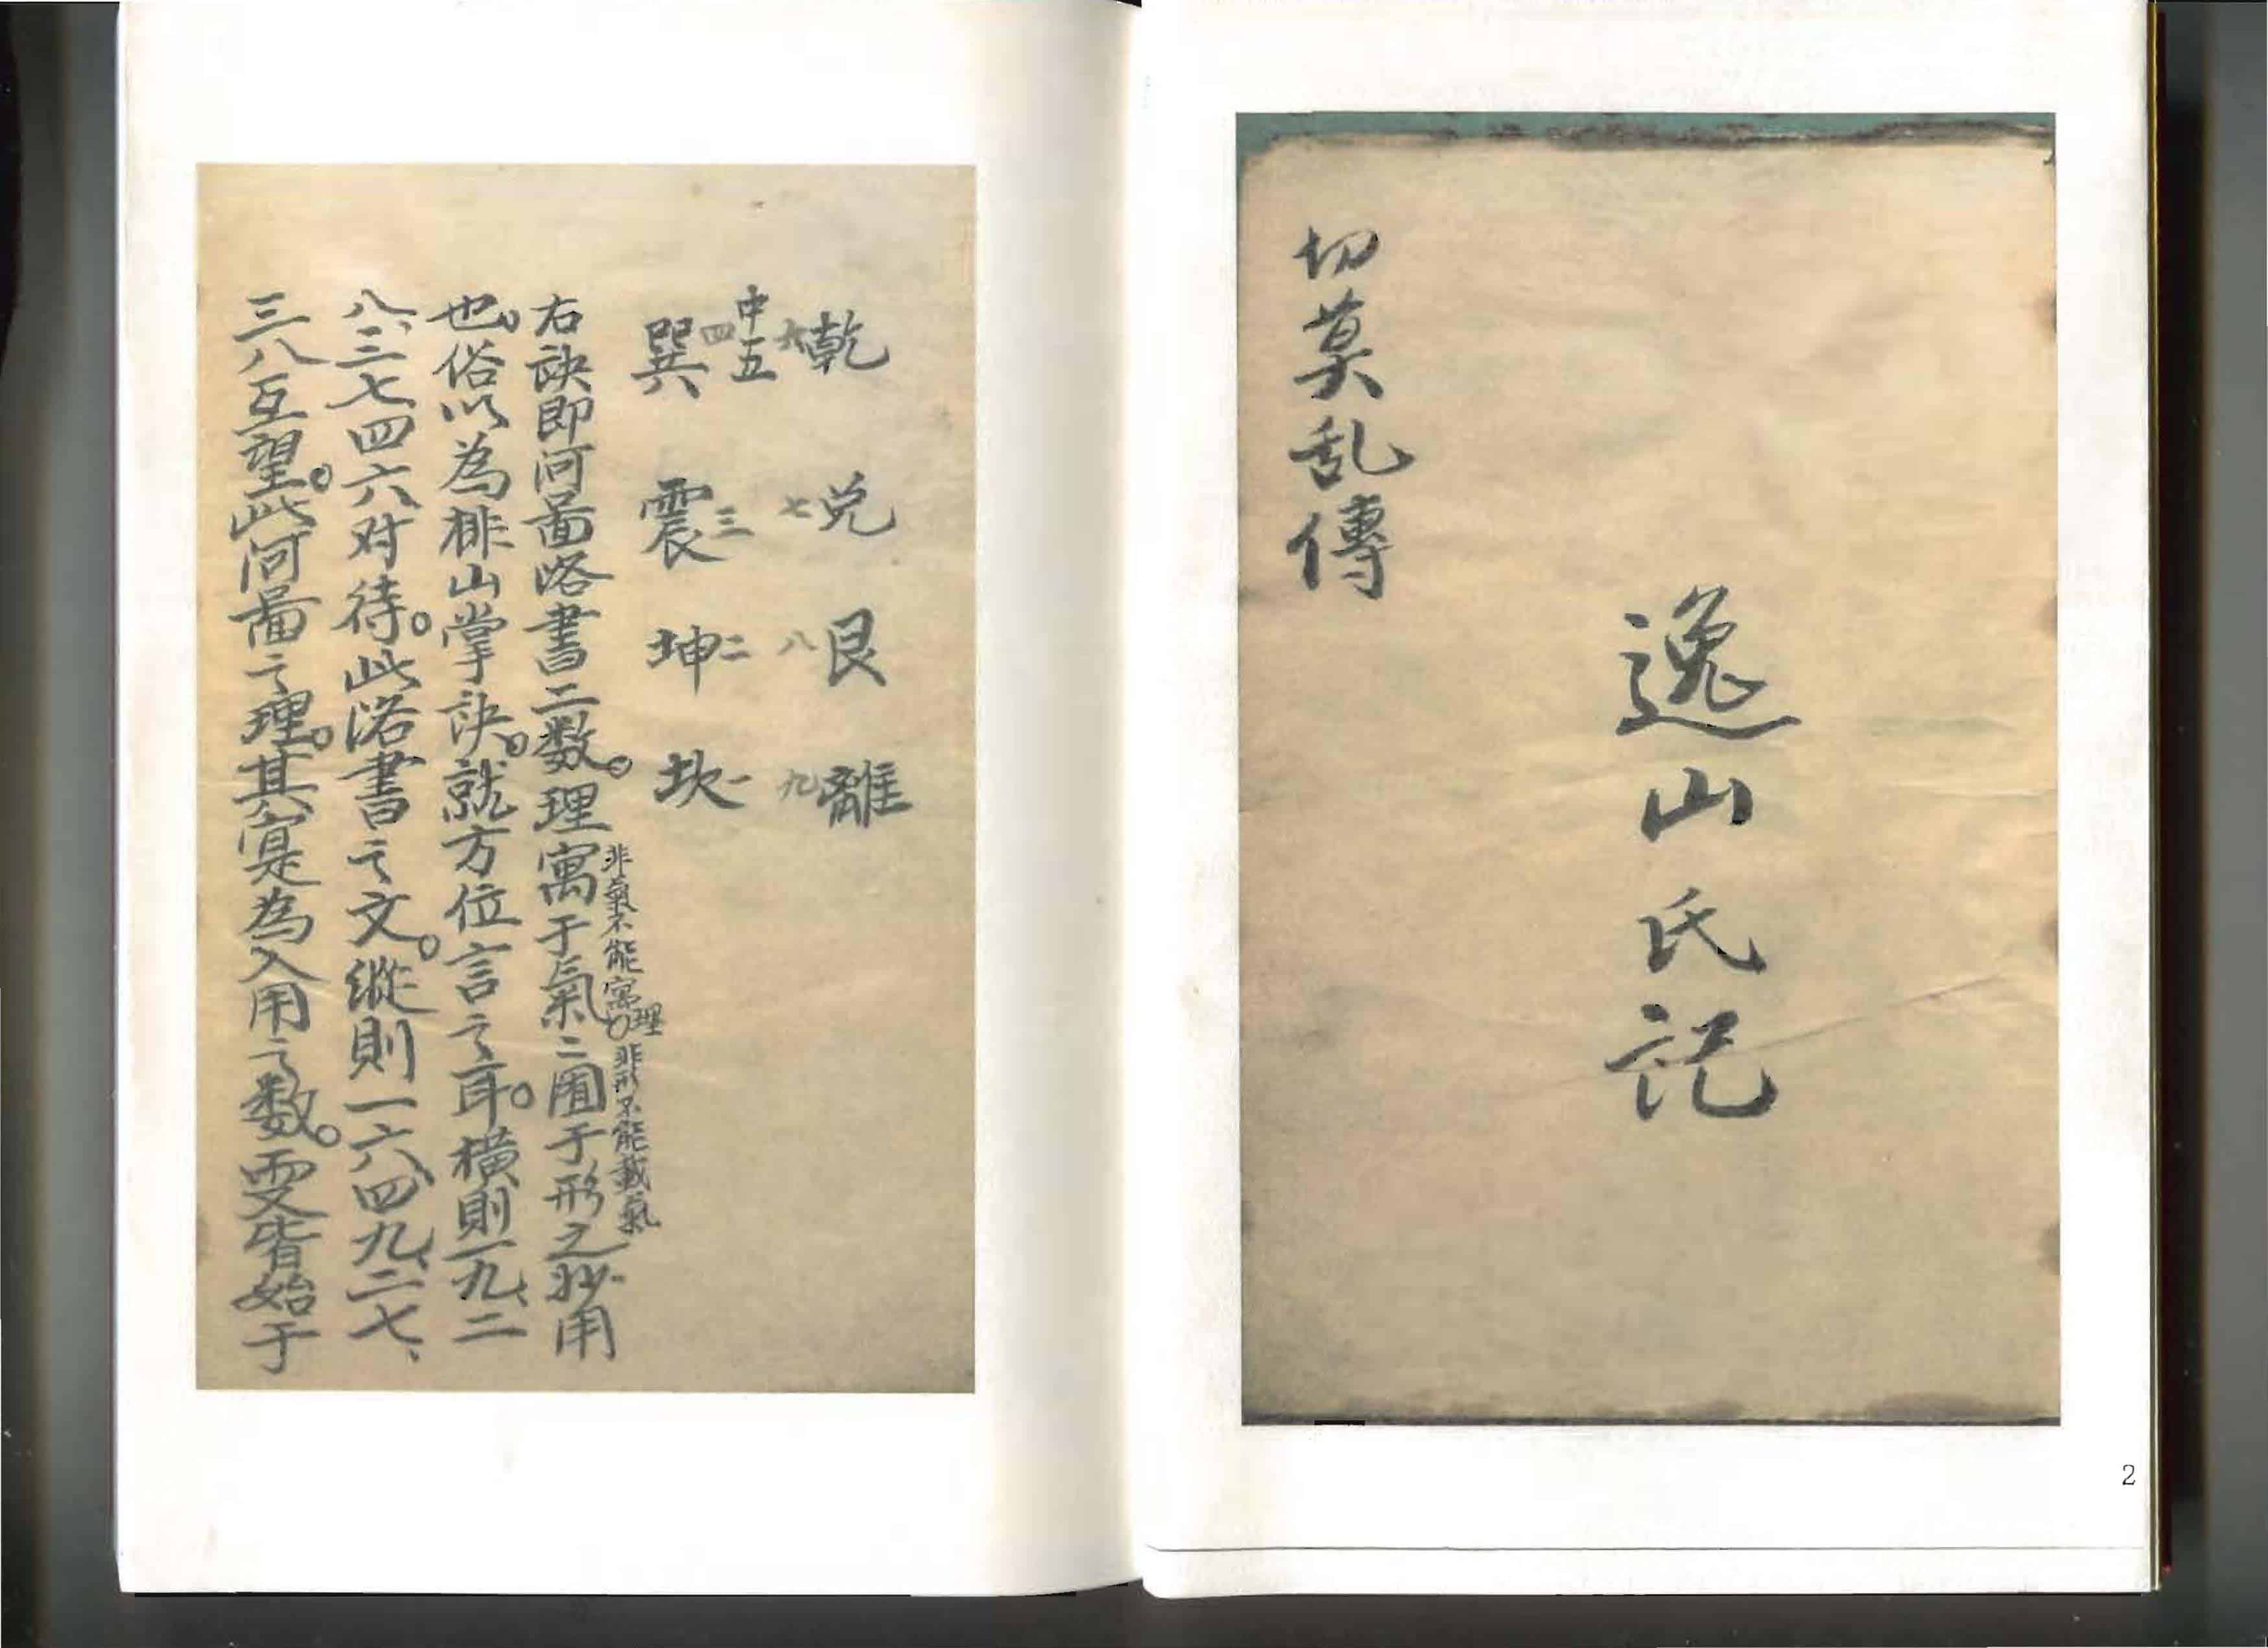 逸山氏記
切莫乱傳
2
乾六 兑七 艮八 離九
中五
巽四 震三 坤二 坎一
右訣即河啚洛書二数。理寓于氣二囿于形之妙用
非氣不能寓理。非形不能載氣
也。俗以為排山掌訣。就方位言之耳。橫則一九、二
八、三七四六对待。此洛書之文。縱則一六、四九、二七、
三八互望。此河啚之理。其寔為入用之数。要皆始于